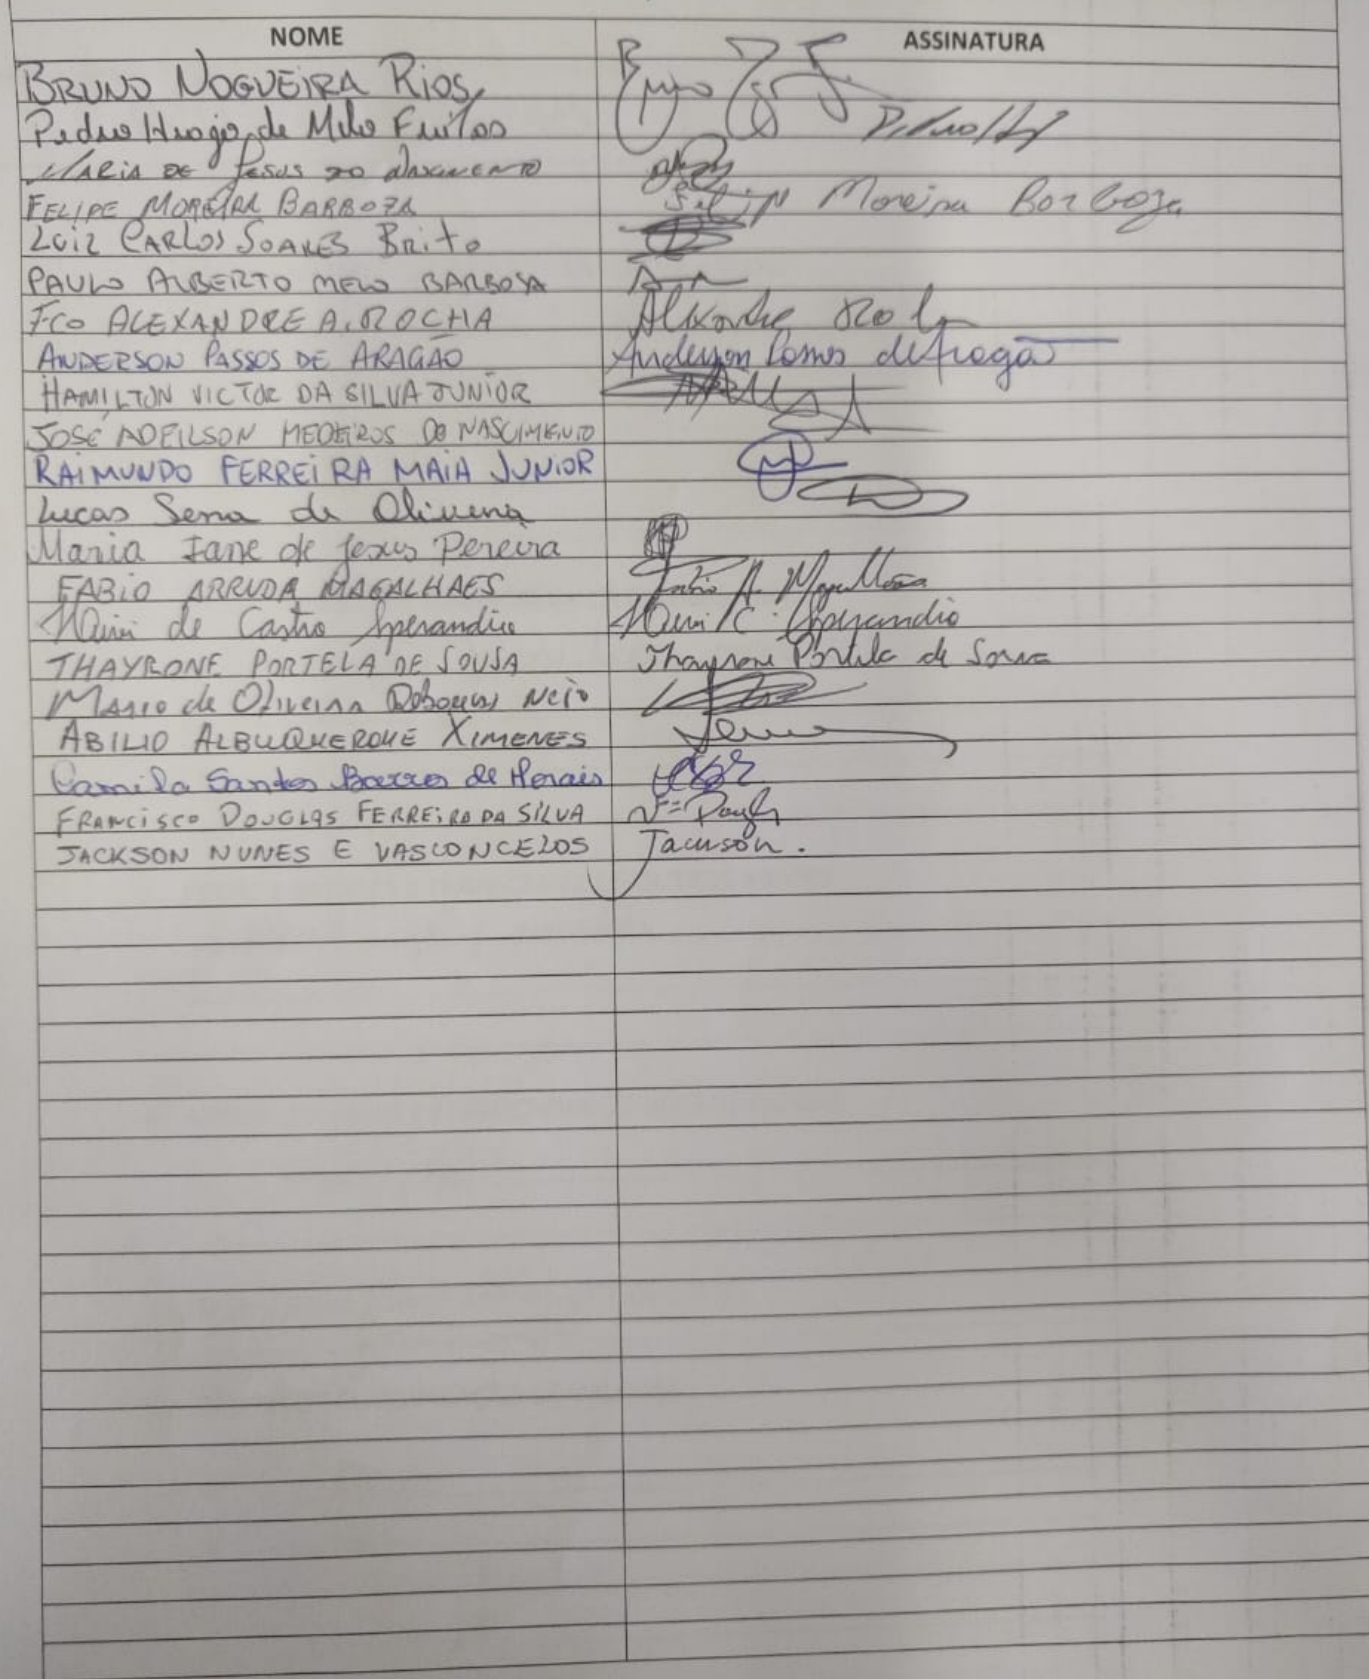 NOME ASSINATURA
BRUNO NOGUEIRA RIOS
Pedro Hiago de Melo Freitas
MARIA DE JESUS DO NASCIMENTO
FELIPE MOREIRA BARBOZA Felip Moreira Barboza
LUIZ CARLOS SOARES Brito
PAULO ALBERTO MELO BARBOSA
FCO ALEXANDRE A. ROCHA Alexandre
ANDERSON PASSOS DE ARAGÃO Anderson Passos de Aragão
HAMILTON VICTOR DA SILVA JUNIOR
JOSÉ ADEILSON MEDEIROS DO NASCIMENTO
RAIMUNDO FERREIRA MAIA JUNIOR
Lucas Sena de Oliveira
Maria Iane de Jesus Pereira
FABIO ARRUDA MAGALHAES Fabio A. Magalhães
de Castro Sperandio C. Sperandio
THAYRONE PORTELA DE SOUSA Thayrone Portela de Sousa
Mario de Oliveira Neto
ABILIO ALBUQUERQUE XIMENES
Camila Santos Barros de Morais
FRANCISCO DOUGLAS FERREIRA DA SILVA
JACKSON NUNES E VASCONCELOS Jackson.